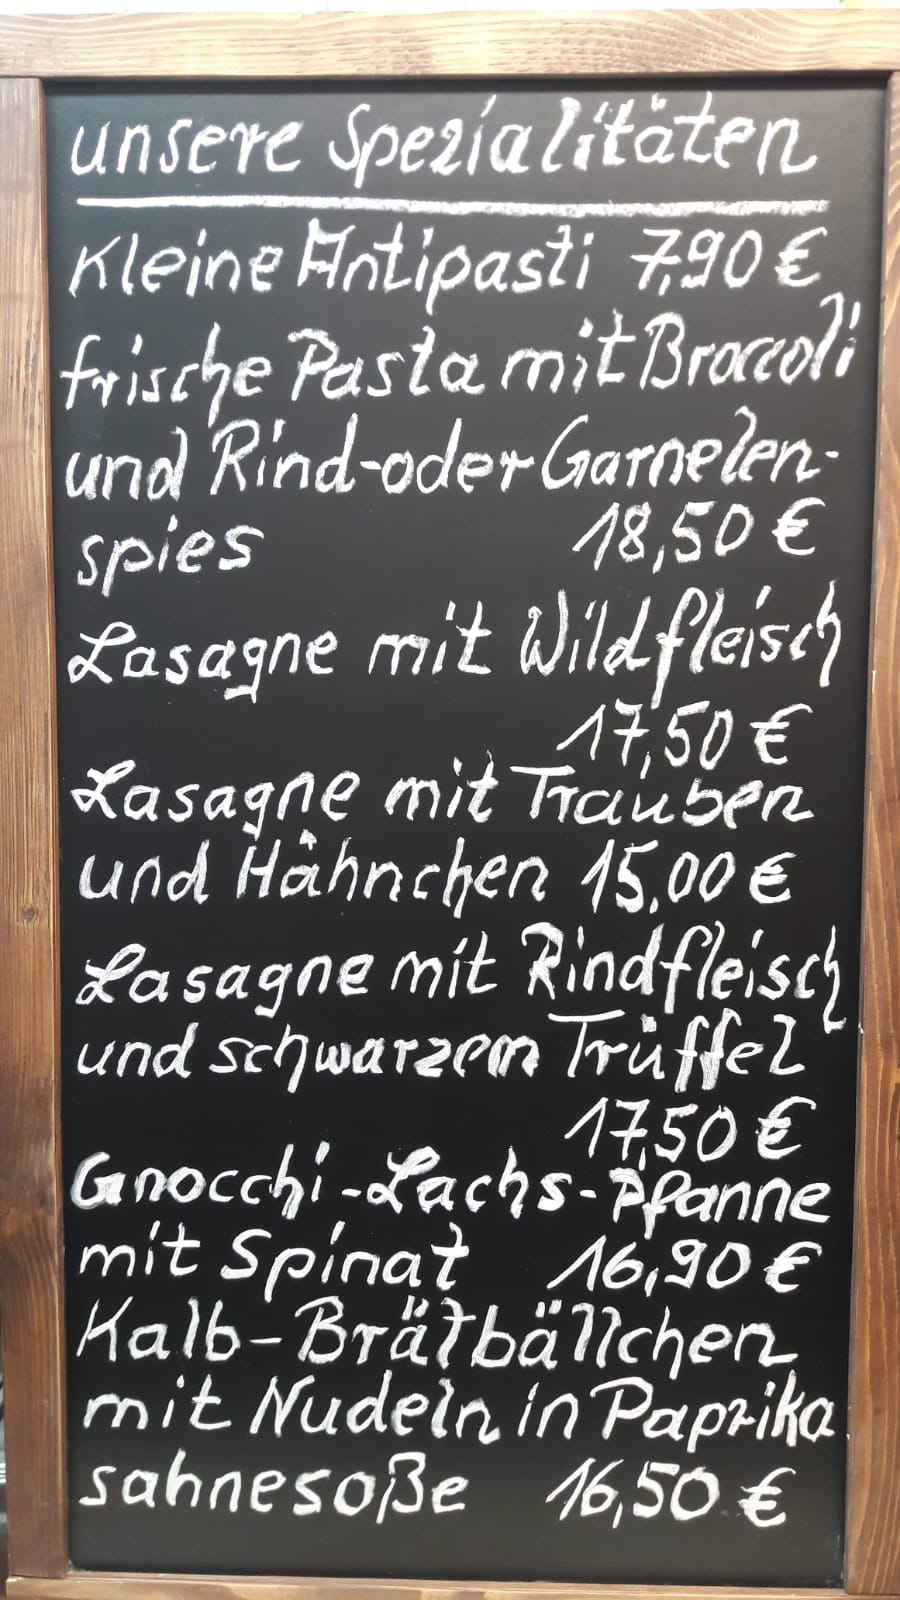 unsere Spezialitäten
Kleine Antipasti 7,90 €
frische Pasta mit Broccoli
und Rind-oder Garnelen-
spies 18,50 €
Lasagne mit Wildfleisch
17,50 €
Lasagne mit Trauben
und Hähnchen 15,00 €
Lasagne mit Rindfleisch
und schwarzem Trüffel
17,50 €
Gnocchi-Lachs-Pfanne
mit Spinat 16,90 €
Kalb-Brätbällchen
mit Nudeln in Paprika
sahnesoße 16,50 €